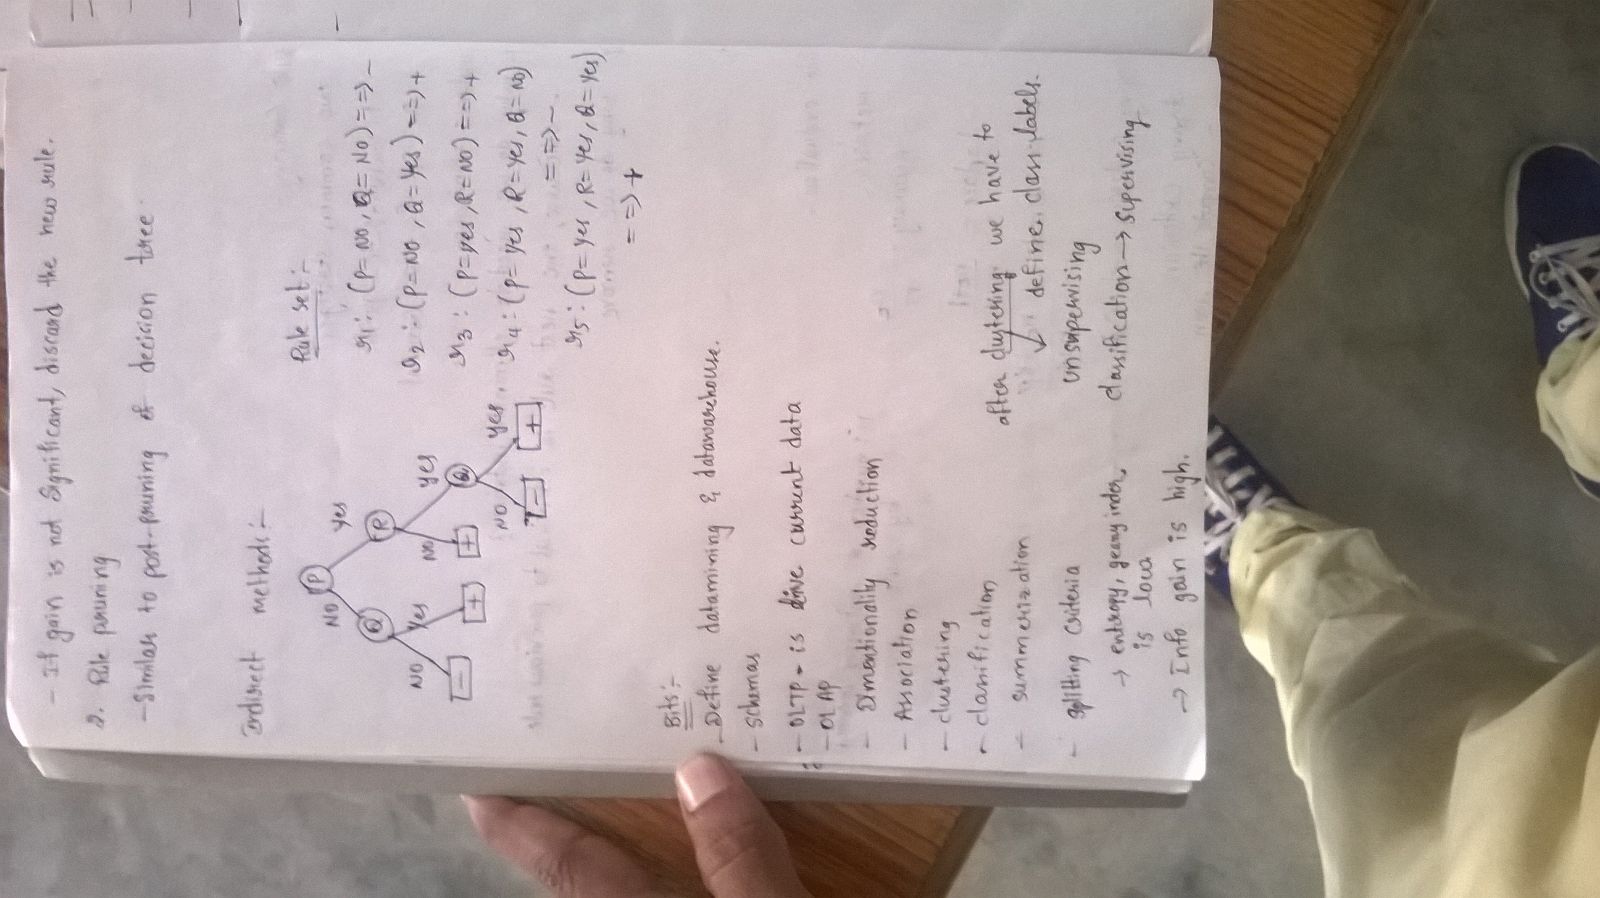 - If gain is not Significant, discard the new rule.
2. Rule pruning
- Similar to post-pruning of decision tree
Indirect methods:-
P
NO
Yes
Q
R
NO
Yes
NO
yes
-
+
+
Q
NO
yes
-
+
Rule set:-
r1: (P=NO, Q=NO)==>-
r2: (P=NO, Q=Yes)==>+
r3: (P=yes, R=NO)==>+
r4: (P=Yes, R=Yes, Q=NO)
==>-
r5: (P=Yes, R=Yes, Q=Yes)
==>+
Bits:-
- Define datamining & datawarehouse.
- Schemas
- OLTP - is drive current data
- OLAP
- Dimentionality reduction
- Association
- clustering
- classification
- summerization
- splitting criteria
→ entropy, geany index,
is low
→ Info gain is high.
after clustering we have to
define class labels.
unsupervising
classification → supervising